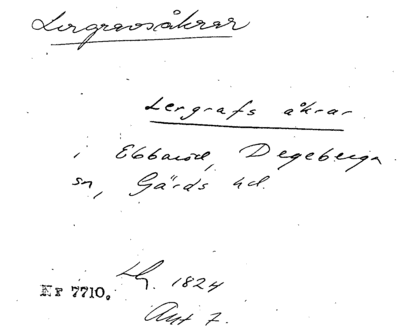 Lergravsåkrar
Lergrafs åkrar
i Ebbaröd, Degeberga
sn, Gärds hd.
Lh. 1824
Nr 7710.
Akt 7.